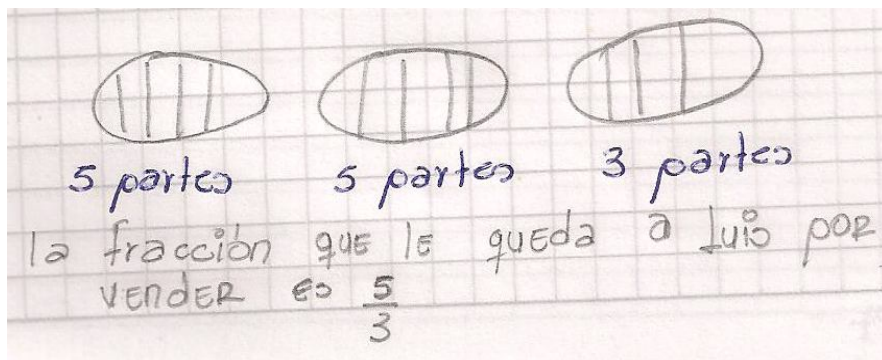 5 partes 5 partes 3 partes
la fracción que le queda a Luis por
vender es 5/3